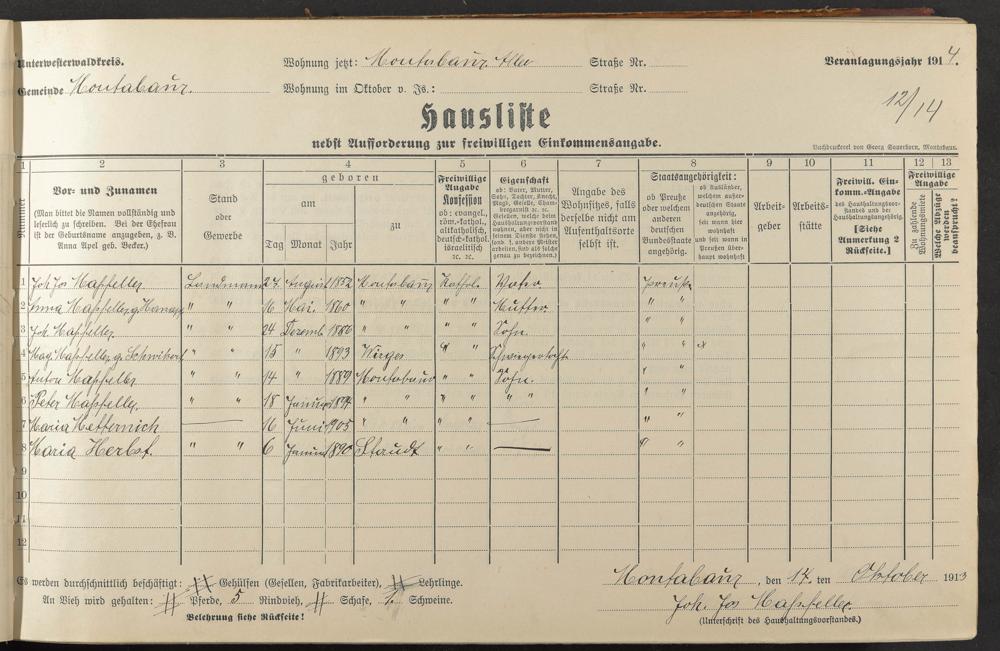 Unterwesterwaldkreis. Wohnung jetzt: Montabaur Straße Nr. Veranlagungsjahr 1914.
Gemeinde Montabaur. Wohnung im Oktober v. Js.: Straße Nr.
12/14
Hausliste
nebst Aufforderung zur freiwilligen Einkommensangabe.
Buchdruckerei von Georg Sauerborn, Montabaur.
1 2 3 4 5 6 7 8 9 10 11 12 13
Nummer
Vor- und Zunamen
(Man bittet die Namen vollständig und
leserlich zu schreiben. Bei der Ehefrau
ist der Geburtsname anzugeben, z. B.
Anna Apel geb. Becker.)
Stand
oder
Gewerbe
geboren
am
Tag Monat Jahr
zu
Freiwillige
Angabe
Konfession
ob: evangel.,
röm.-kathol.,
altkatholisch,
deutsch-kathol.
israelitisch
ꝛc. ꝛc.
Eigenschaft
ob: Vater, Mutter,
Sohn, Tochter, Knecht,
Magd, Geselle,
Gesellen, welche beim
Haushaltungsvorstand
wohnen, aber nicht in
seinem Dienste stehen,
sond. f. andere Meister
arbeiten, sind als solche
genau zu bezeichnen.)
Angabe des
Wohnsitzes, falls
derselbe nicht am
Aufenthaltsorte
selbst ist.
Staatsangehörigkeit:
ob Preuße
oder welchem
anderen
deutschen
Bundesstaate
angehörig.
ob Ausländer,
welchem außer-
deutschen Staate
angehörig,
seit wann hier
wohnhaft
und seit wann in
Preußen über-
haupt wohnhaft
Arbeit-
geber
Arbeits-
stätte
Freiwill. Ein-
komm.-Angabe
des Haushaltungsvor-
standes und der
Haushaltungsangehörig.
[Siehe
Anmerkung 2
Rückseite.]
Freiwillige
Angabe
Zu zahlende
Wohnungsmiete
Welche Abzüge
werden
beansprucht?
1 Joh Jos Hapfeller Landmann 27. August 1852 Montabaur Kathol. Vater Preuße
2 Anna Hapfeller g. " " 16 Mai. 1860 " " " " Mutter. " "
3 Joh. Hapfeller. " " 24 Dezemb. 1886 " " " " Sohn. " "
4 Mag. Hapfeller g. " " 15 " 1893 Wirges " " Schwiegertocht " "
5 Anton Hapfeller " " 14 " 1889 Montabaur " " Sohn. " "
6 Peter Hapfeller. " " 18 Januar 1894 " " " " " " " "
7 Maria Metternich — 16 Juni 1905 " " " " — " "
8 Maria Herbst. " " 6 Januar 1890 Staudt " " — " "
9
10
11
12
Es werden durchschnittlich beschäftigt: // Gehülfen (Gesellen, Fabrikarbeiter), // Lehrlinge.
An Vieh wird gehalten: // Pferde, 5 Rindvieh, // Schafe, Schweine.
Belehrung siehe Rückseite!
Montabaur, den 17. ten Oktober 1913
Joh. Jos Hapfeller.
(Unterschrift des Haushaltungsvorstandes.)